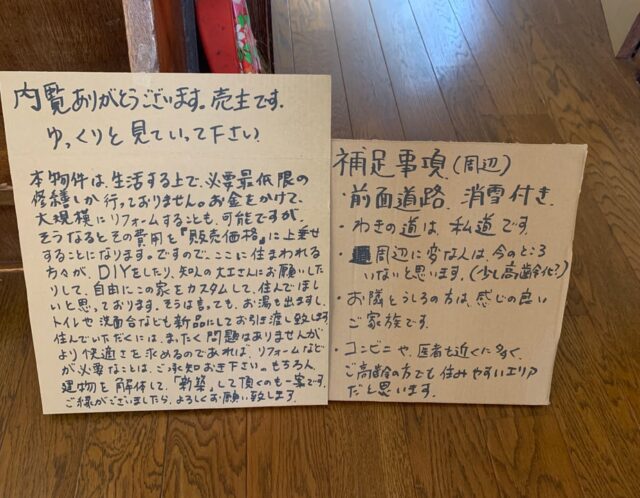 内覧ありがとうございます。売主です。
ゆっくりと見ていって下さい
本物件は、生活する上で、必要最低限の
修繕しか行っておりません。お金をかけて、
大規模にリフォームすることも、可能ですが、
そうなるとその費用を『販売価格』に上乗せ
することになります。ですので、ここに住まわれる
方々が、DIYをしたり、知人の大工さんにお願いした
りして、自由にこの家をカスタムして、住んでほし
いと思っております。そうは言っても、お湯も出ますし、
トイレや洗面台なども新品にしてお引き渡し致します
住んでいただくには、まったく問題はありませんが、
より快適さを求めるのであれば、リフォームなど
が必要なことは、ご承知おき下さい。もちろん、
建物を解体して、「新築」して頂くのも一案です。
ご縁がございましたら、よろしくお願い致します。
補足事項(周辺)
・前面道路、消雪付き。
・わきの道は、私道です。
・周辺に変な人は、今のところ
いないと思います。(少し高齢化?)
・お隣とうしろの方は、感じの良い
ご家族です。
・コンビニや、医者も近くに多く、
ご高齢の方でも住みやすいエリア
だと思います。